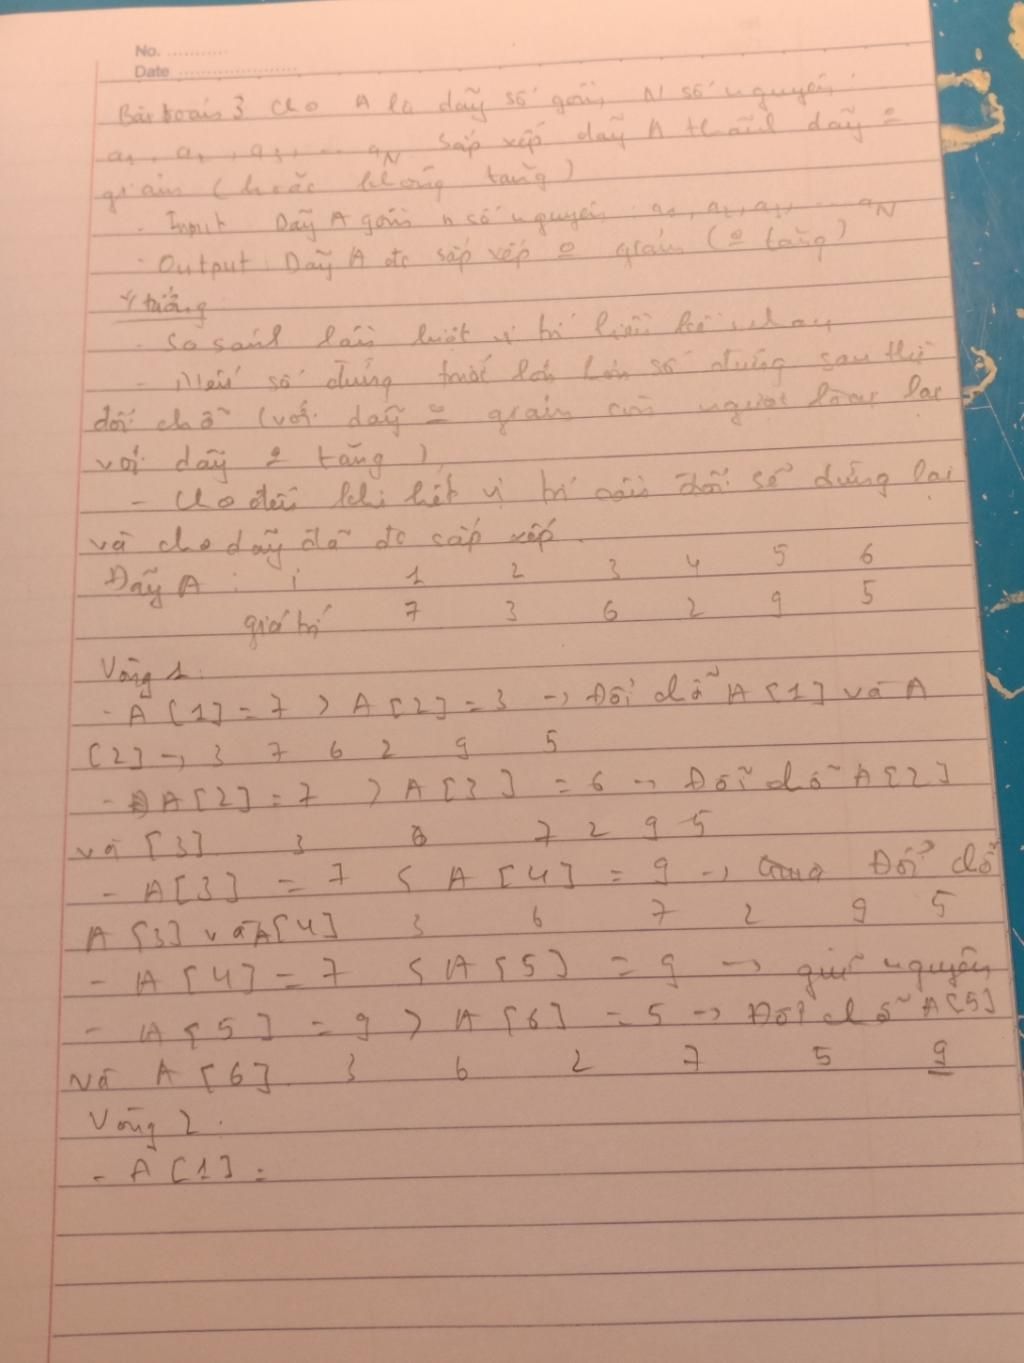 No. ...........
Date .....................
Bài toán 3 cho A là dãy số gồm N số nguyên
a1, a2, a3, ... aN sắp xếp dãy A thành dãy o
giảm (hoặc không tăng)
- Input Dãy A gồm n số nguyên: a1, a2, a3, ... aN
- Output: Dãy A đc sắp xếp o giảm (o tăng)
Ý tưởng
- So sánh lần lượt vị trí liền kề nhau
- Nếu số đứng trước lớn hơn số đứng sau thì
đổi chỗ (với dãy o giảm còn ngược lại
với dãy o tăng)
- Cho đến khi hết vị trí cần đổi sẽ dừng lại
và cho dãy đã đc sắp xếp.
Dãy A : i 1 2 3 4 5 6
giá trị 7 3 6 2 9 5
Vòng 1.
- A [1] = 7 > A [2] = 3 → Đổi chỗ A [1] và A
[2] → 3 7 6 2 9 5
- A [2] = 7 > A [3] = 6 → Đổi chỗ A [2]
và [3] 3 6 7 2 9 5
- A [3] = 7 < A [4] = 9 → Đổi chỗ
A [3] và A [4] 3 6 7 2 9 5
- A [4] = 7 < A [5] = 9 → giữ nguyên
- A [5] = 9 > A [6] = 5 → Đổi chỗ A [5]
và A [6] 3 6 2 7 5 9
Vòng 2.
- A [1] =